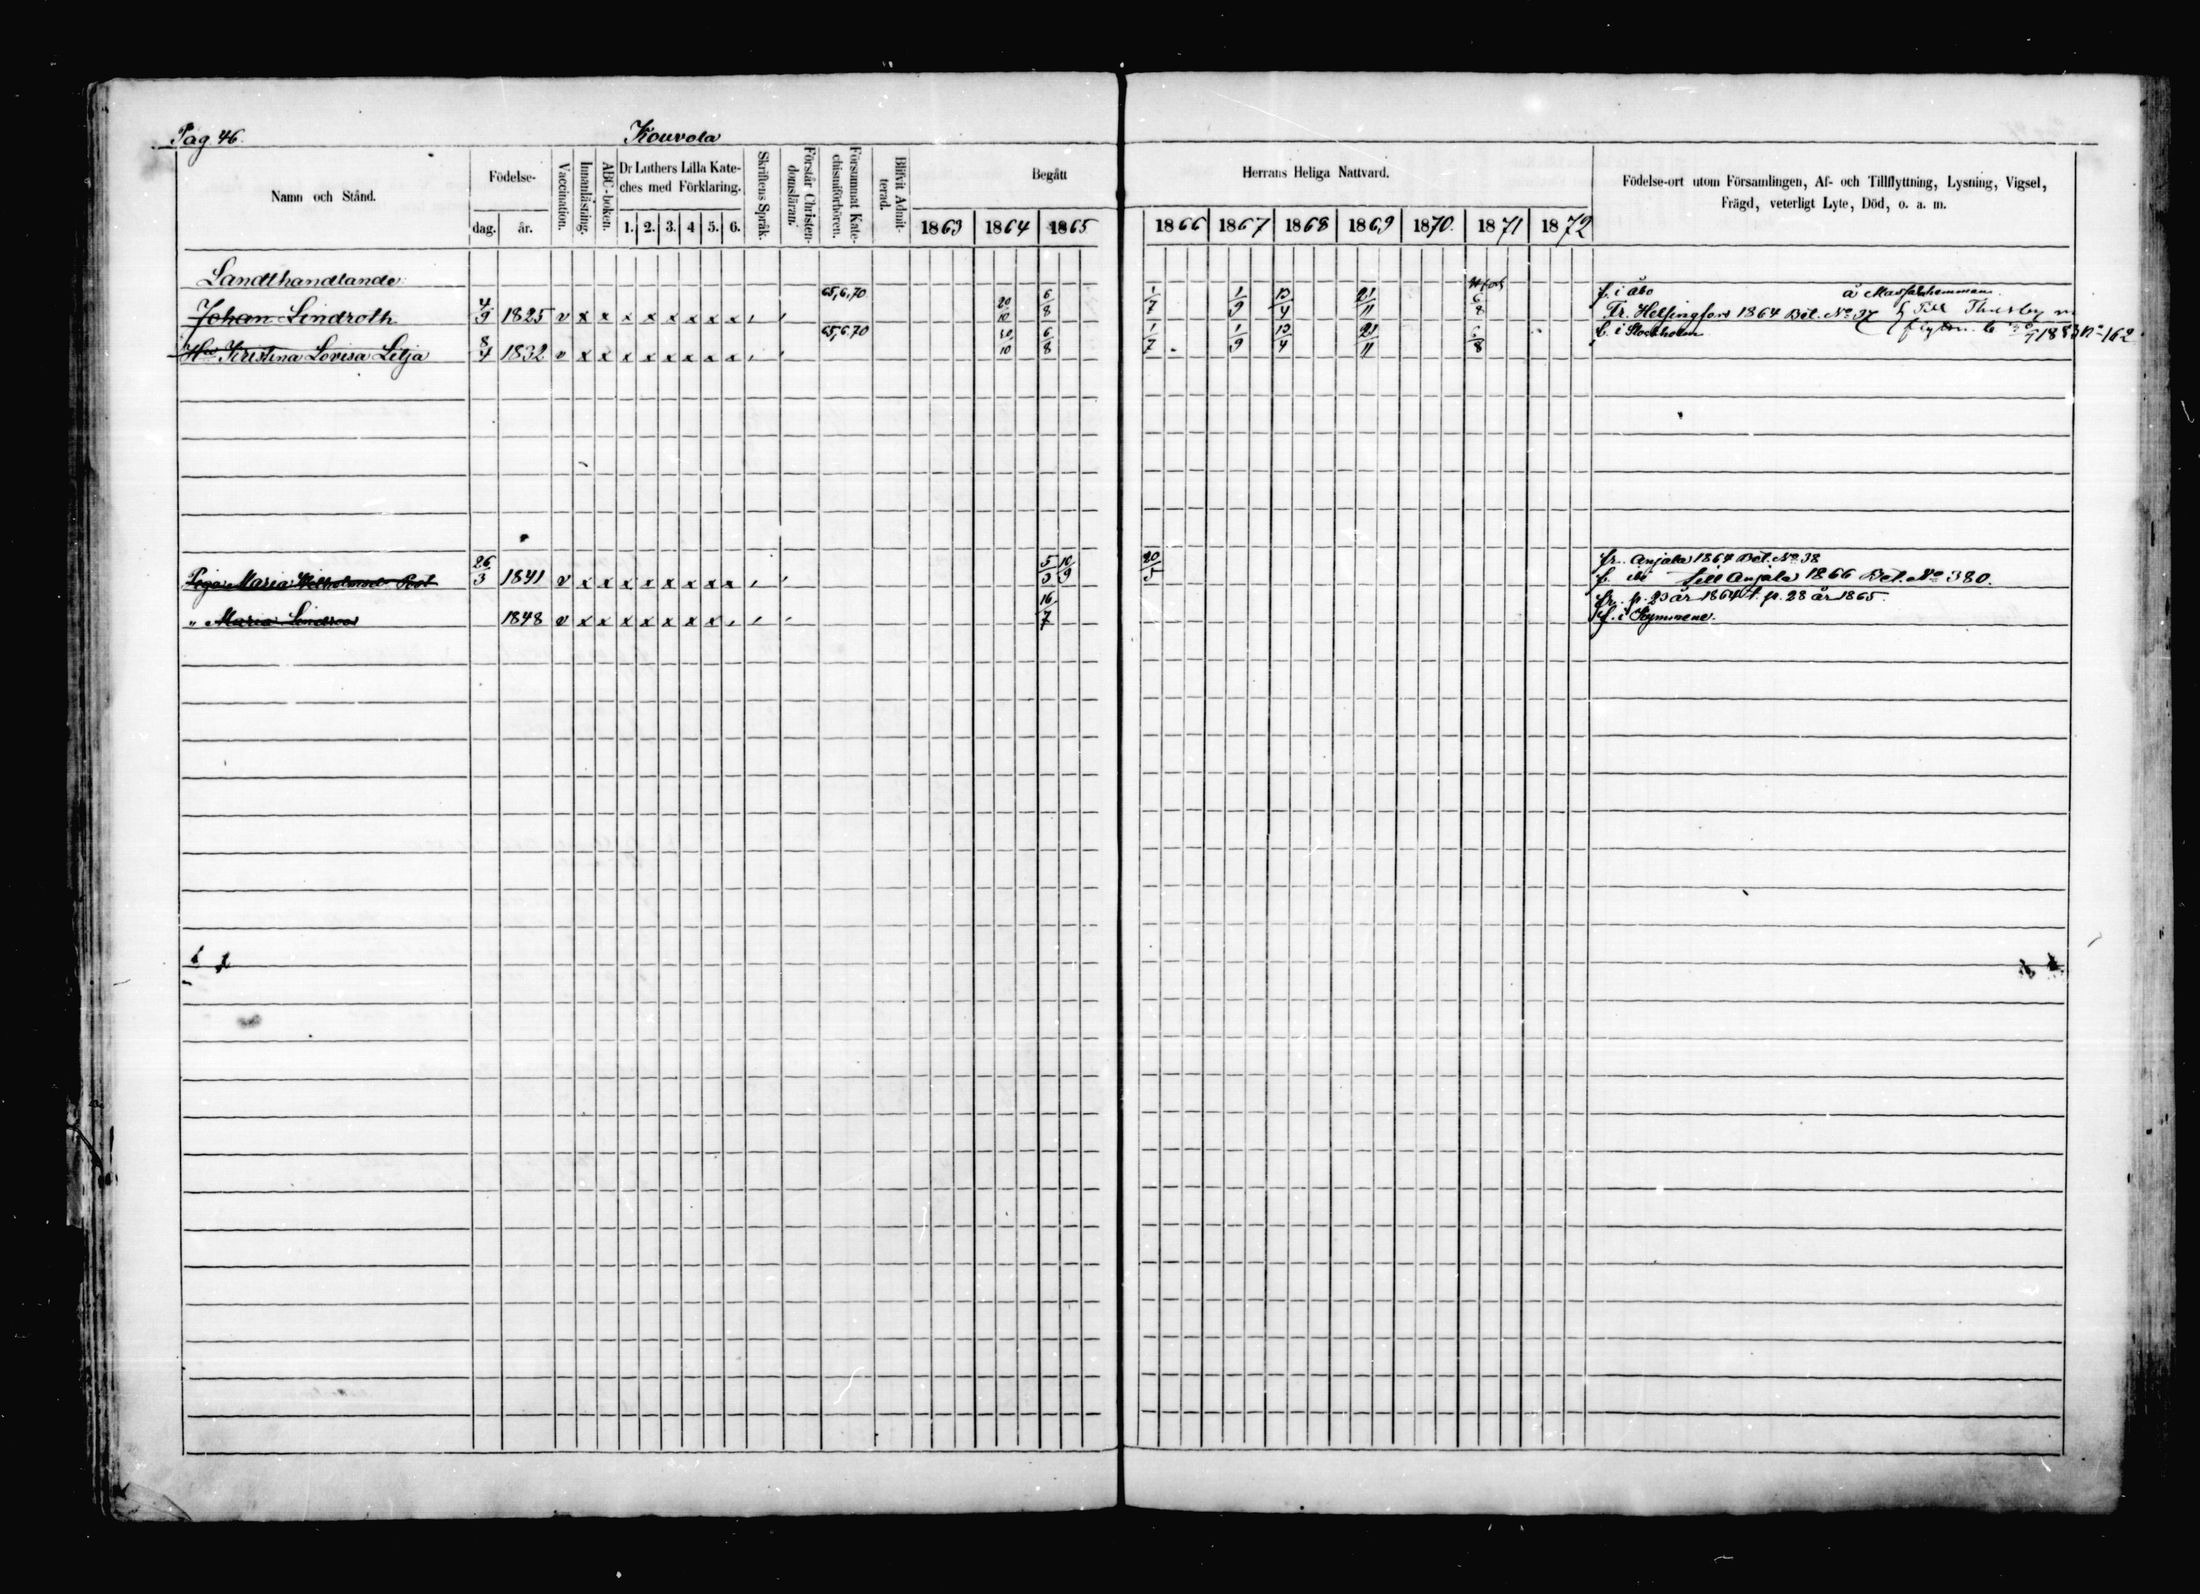 Pag. 46.
Kouvola
Namn och Stånd.
Födelse-
dag. år.
Vaccination.
Innanläsning.
ABC-boken.
Dr Luthers Lilla Kate-
ches med Förklaring.
1. 2. 3. 4 5. 6.
Skriftens Språk.
Förstår Christen-
domsläran.
Försummat Kate-
chismiförhören.
Blifvit Admit-
terad.
Begått
1863 1864 1865
Herrans Heliga Nattvard.
1866 1867 1868 1869 1870. 1871 1872
Födelse-ort utom Församlingen, Af- och Tillflyttning, Lysning, Vigsel,
Frägd, veterligt Lyte, Död, o. a. m.
Landthandlande
Johan Lindroth 4/9 1825 v x x x x x x x x 65,6,70 20/10 6/8 1/7 1/9 13/4 21/11 6/8 f. i Åbo
Fr. Helsingfors 1864 Bet. No 37 Till Thusby
Hu Kristina Lovisa Lilja 8/4 1832 v x x x x x x x x 65,6,70 20/10 6/8 1/7 1/9 13/4 21/11 6/8 f. i Stockholm 1883 No 162
Piga Maria Wilhelmsd. Post 26/3 1841 v x x x x x x x x 5/3 10/9 20/5 fr. Anjala 1864 Bet. No 38
till Anjala 1866 Bet. No 380.
" Maria Lindroos 1848 v x x x x x x x 16/7 fr. p. 23 år 1864 t. p. 28 år 1865.
f. i Kymmene.